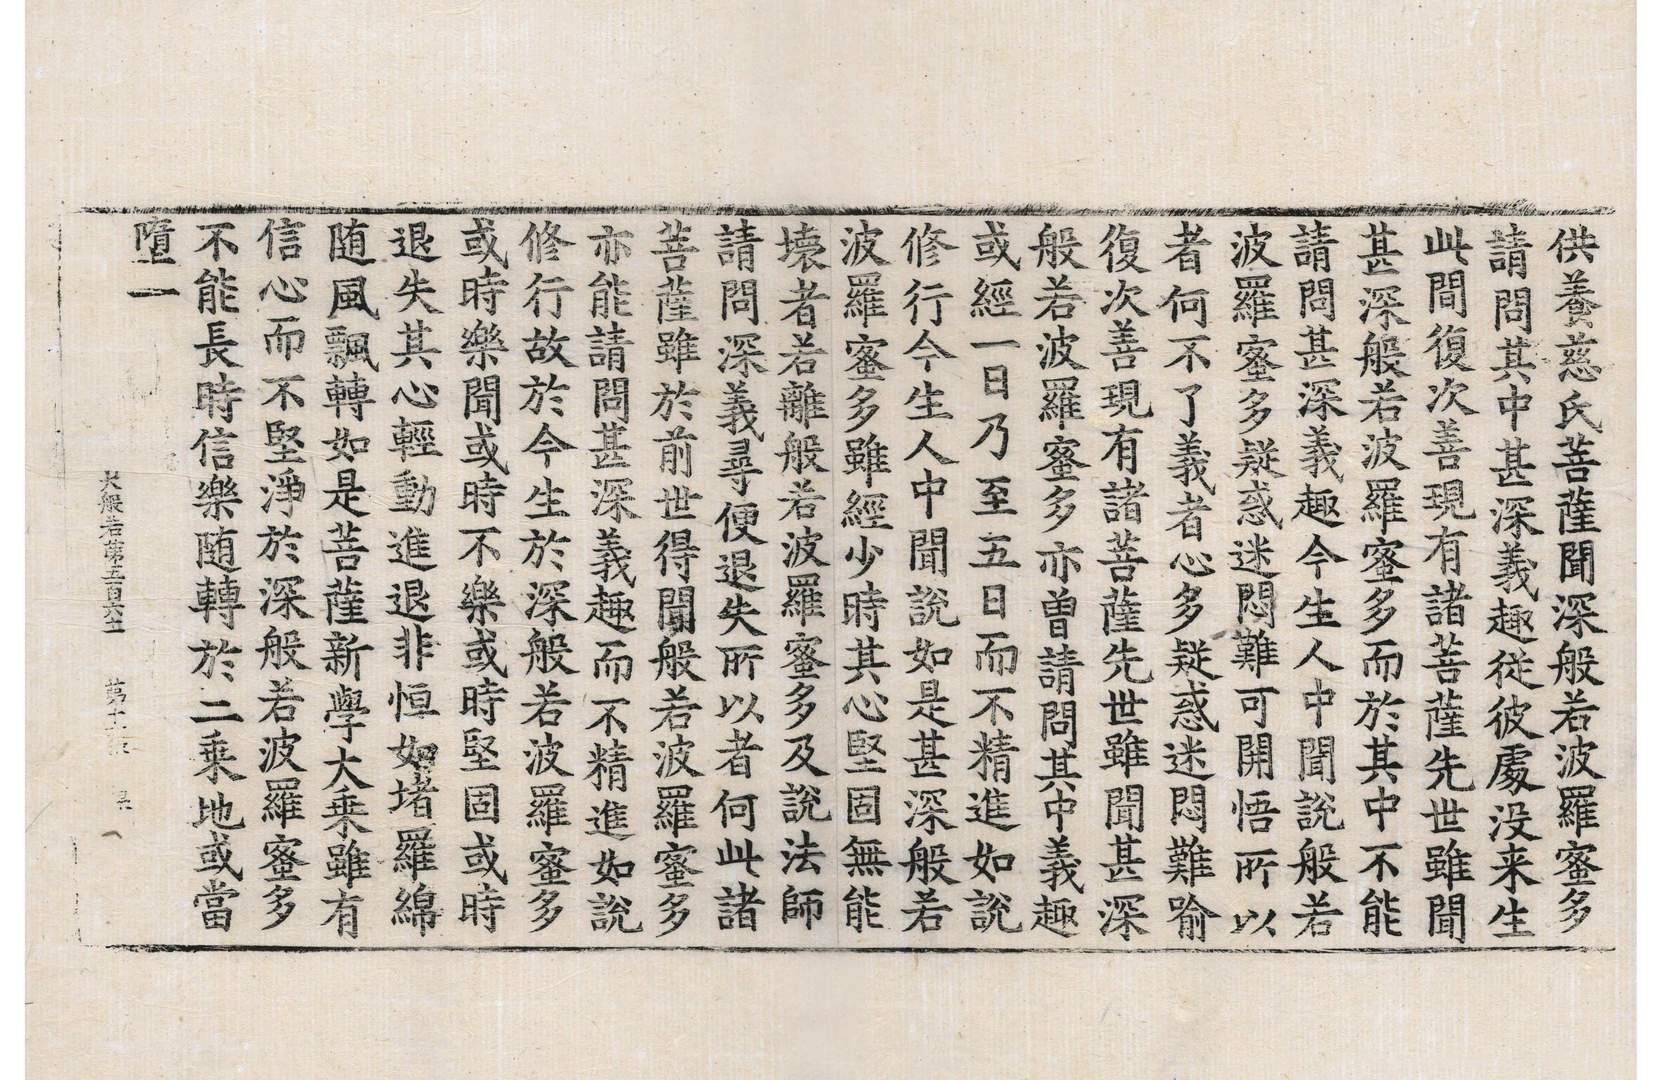 供養慈氏菩薩聞深般若波羅蜜多
請問其中甚深義趣從彼處没来生
此間復次善現有諸菩薩先世雖聞
甚深般若波羅蜜多而於其中不能
請問甚深義趣今生人中聞說般若
波羅蜜多疑惑迷悶難可開悟所以
者何不了義者心多疑惑迷悶難踰
復次善現有諸菩薩先世雖聞甚深
般若波羅蜜多亦曾請問其中義趣
或經一日乃至五日而不精進如說
修行今生人中聞說如是甚深般若
波羅蜜多雖經少時其心堅固無能
壞者若離般若波羅蜜多及說法師
請問深義尋便退失所以者何此諸
菩薩雖於前世得聞般若波羅蜜多
亦能請問甚深義趣而不精進如說
修行故於今生於深般若波羅蜜多
或時樂聞或時不樂或時堅固或時
退失其心輕動進退非恒如堵羅綿
随風飄轉如是菩薩新學大乘雖有
信心而不堅淨於深般若波羅蜜多
不能長時信樂随轉於二乘地或當
墮一
大般若第五百六十一 第十